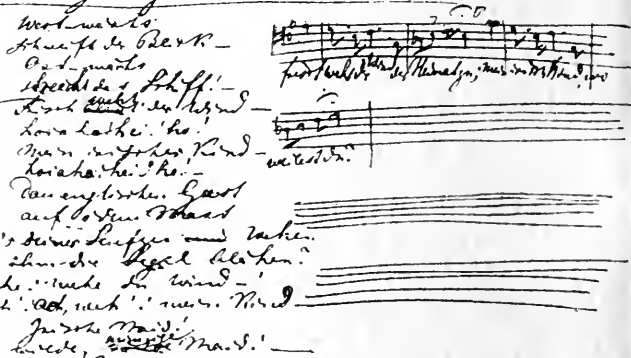 West-wärts
schweift der Blick –
Ost-wärts
streicht das Schiff! –
Frisch weht der Wind –
hoiahahei! ho!
Mein irisches Kind –
hoiaha! hei! ho! –
auf ödem Mast
deiner Seufzer Wehen
die Segel blähen?
wehe du Wind – !
Ach, weh'! mein Kind
Irische Maid!
minnige Maid! —
frisch weht der Wind der Heimath zu; mein irisch Kind, wo
weilest du?